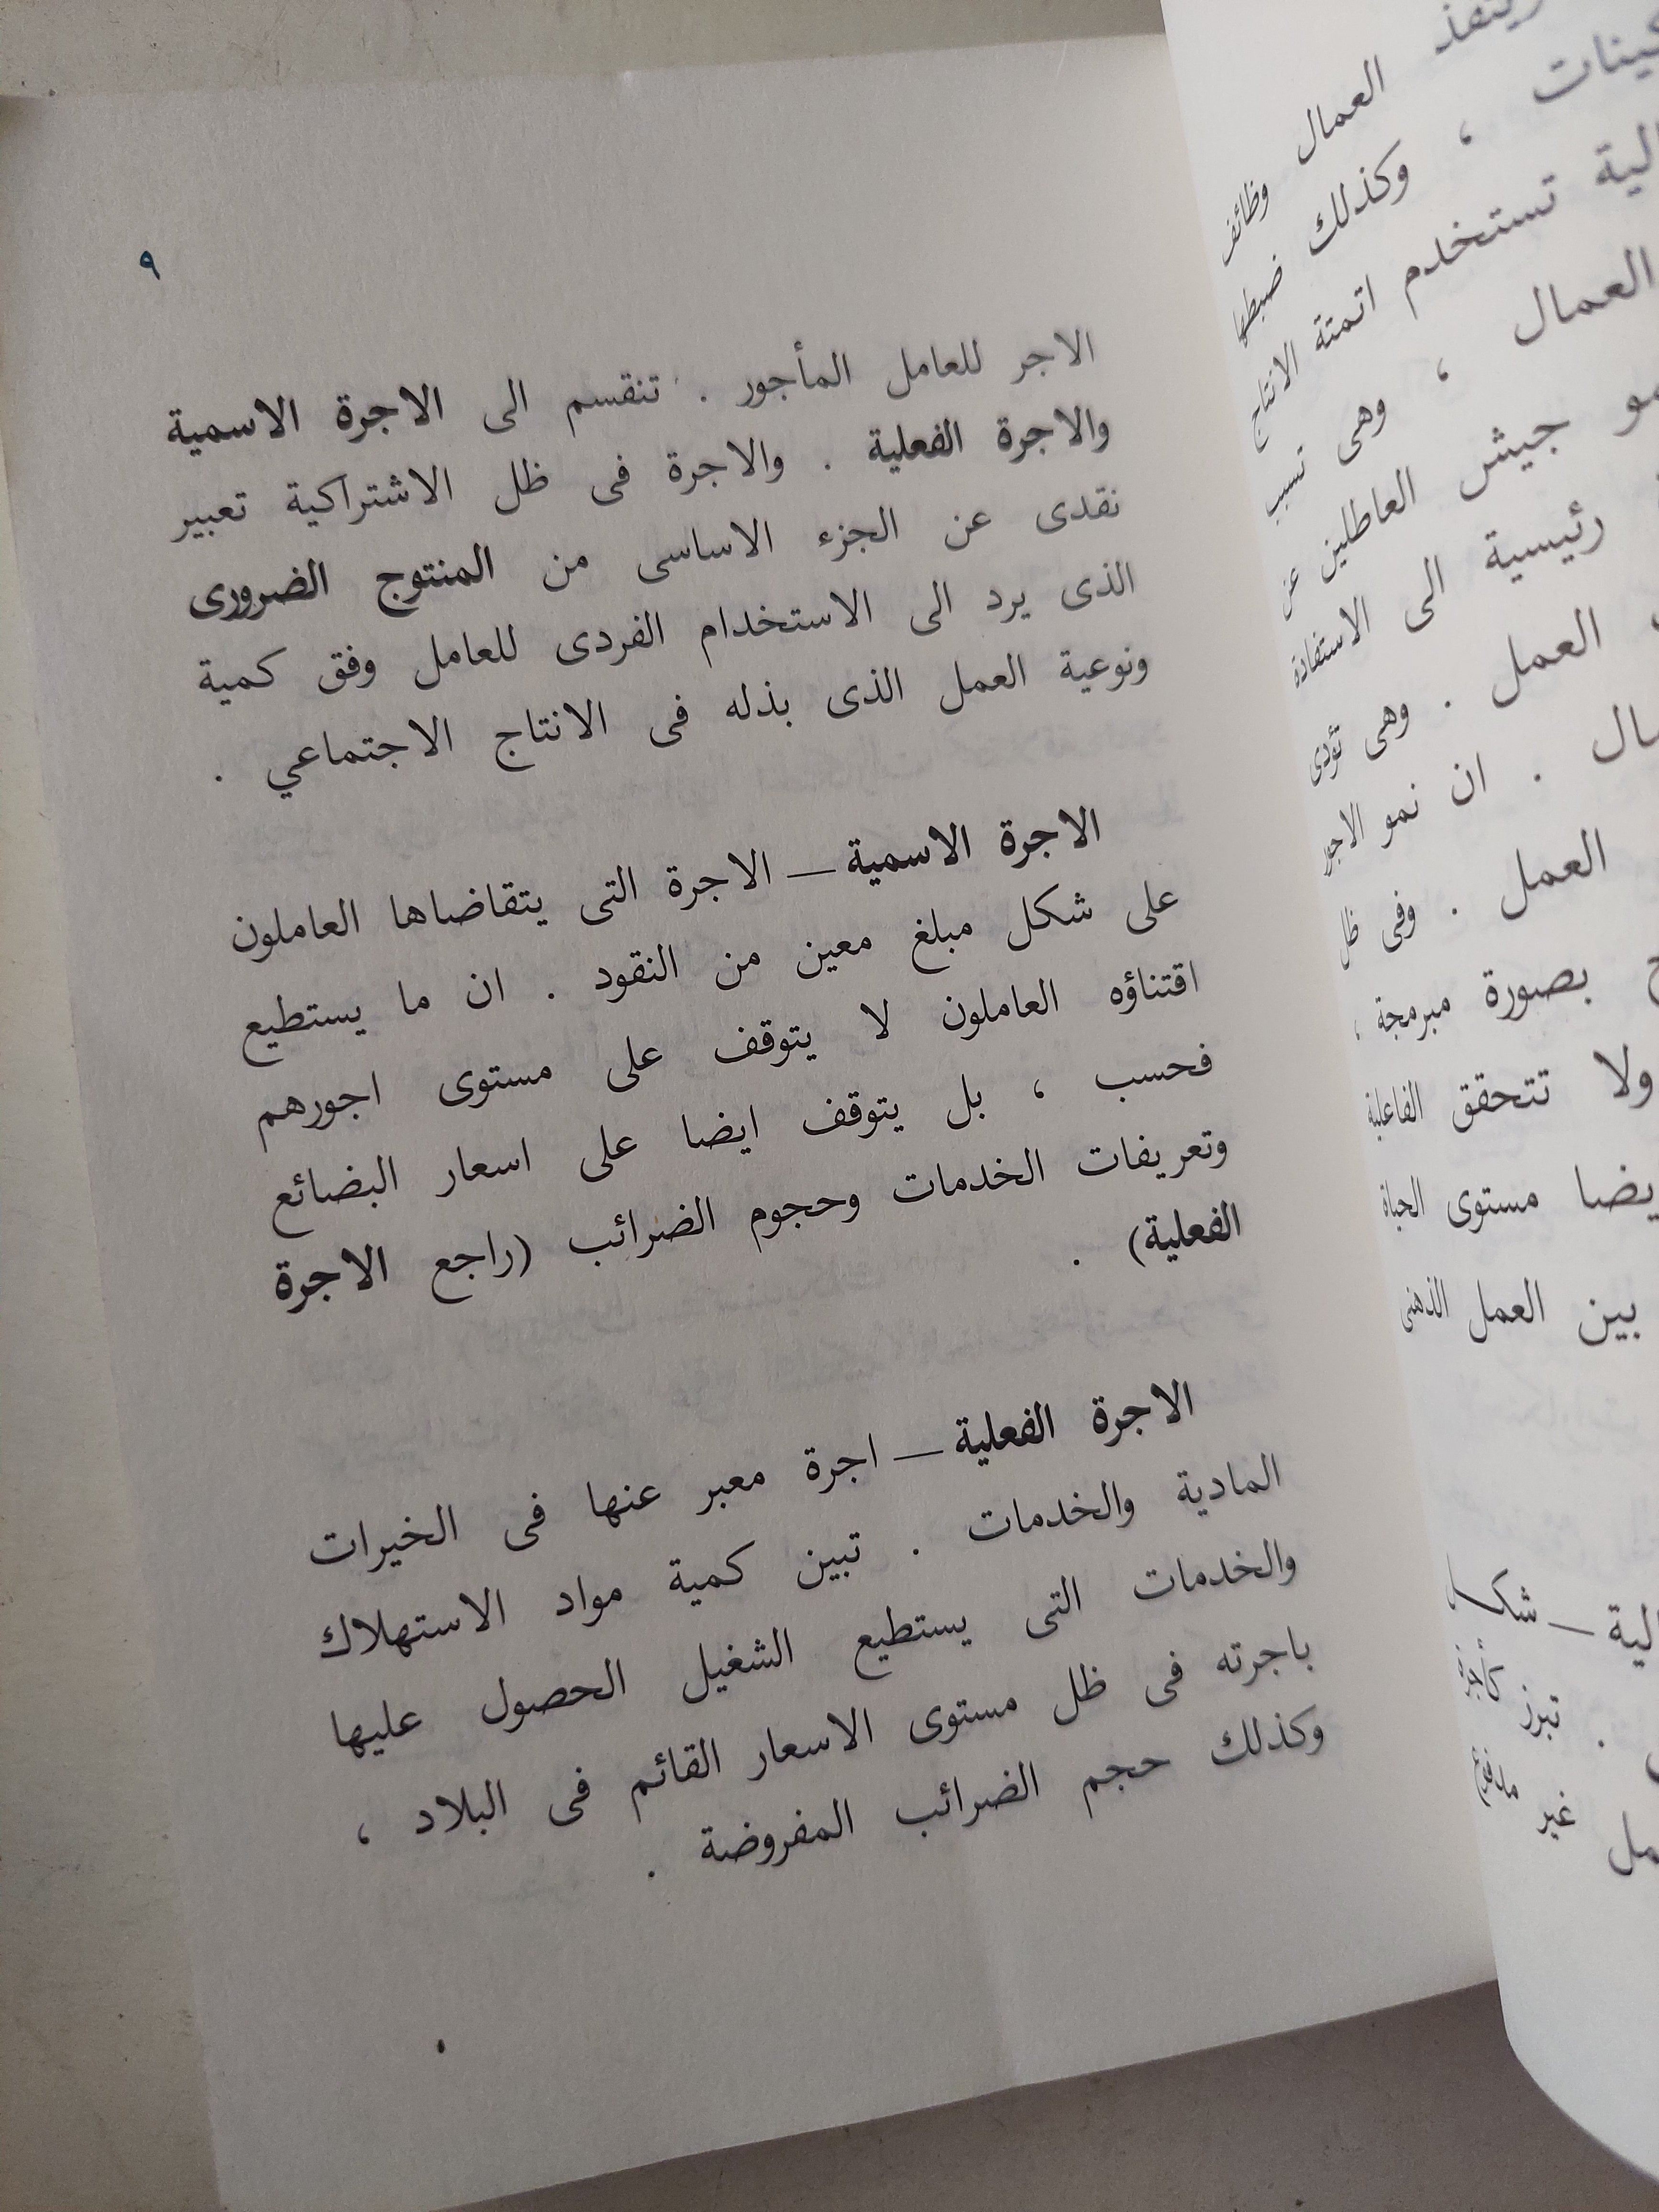 العمال وظائف
، وكذلك ضبطها
تستخدم اتمتة الانتاج
العمال ، وهى تسبب
جيش العاطلين عن
رئيسية الى الاستفادة
العمل . وهى تؤدى
. ان نمو الاجور
العمل . وفى ظل
بصورة مبرمجة ،
ولا تتحقق الفاعلية
مستوى الحياة
بين العمل الذهنى
— شكل
. تبرز كأجرة
غير مدفوع
٩
الاجر للعامل المأجور . تنقسم الى الاجرة الاسمية
والاجرة الفعلية . والاجرة فى ظل الاشتراكية تعبير
نقدى عن الجزء الاساسى من المنتوج الضرورى
الذى يرد الى الاستخدام الفردى للعامل وفق كمية
ونوعية العمل الذى بذله فى الانتاج الاجتماعي .
الاجرة الاسمية — الاجرة التى يتقاضاها العاملون
على شكل مبلغ معين من النقود . ان ما يستطيع
اقتناؤه العاملون لا يتوقف على مستوى اجورهم
فحسب ، بل يتوقف ايضا على اسعار البضائع
وتعريفات الخدمات وحجوم الضرائب (راجع الاجرة
الفعلية) .
الاجرة الفعلية — اجرة معبر عنها فى الخيرات
المادية والخدمات . تبين كمية مواد الاستهلاك
والخدمات التى يستطيع الشغيل الحصول عليها
باجرته فى ظل مستوى الاسعار القائم فى البلاد ،
وكذلك حجم الضرائب المفروضة .